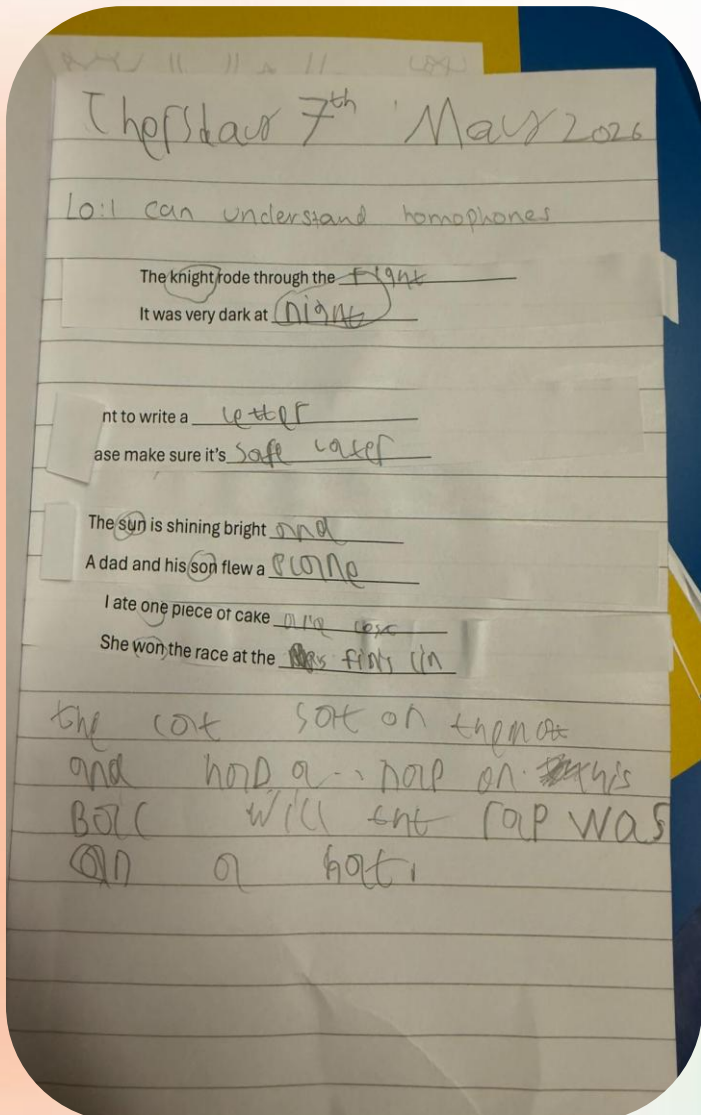 Thefsdaur 7th May 2026
Lo: I can understand homophones
The knight rode through the fight
It was very dark at night
nt to write a letter
ase make sure it's safe later
The sun is shining bright and
A dad and his son flew a
I ate one piece of cake
She won the race at the finis lin
the cat sat on themat
and had a nap on this
Bac will tht rap was
an a hat.